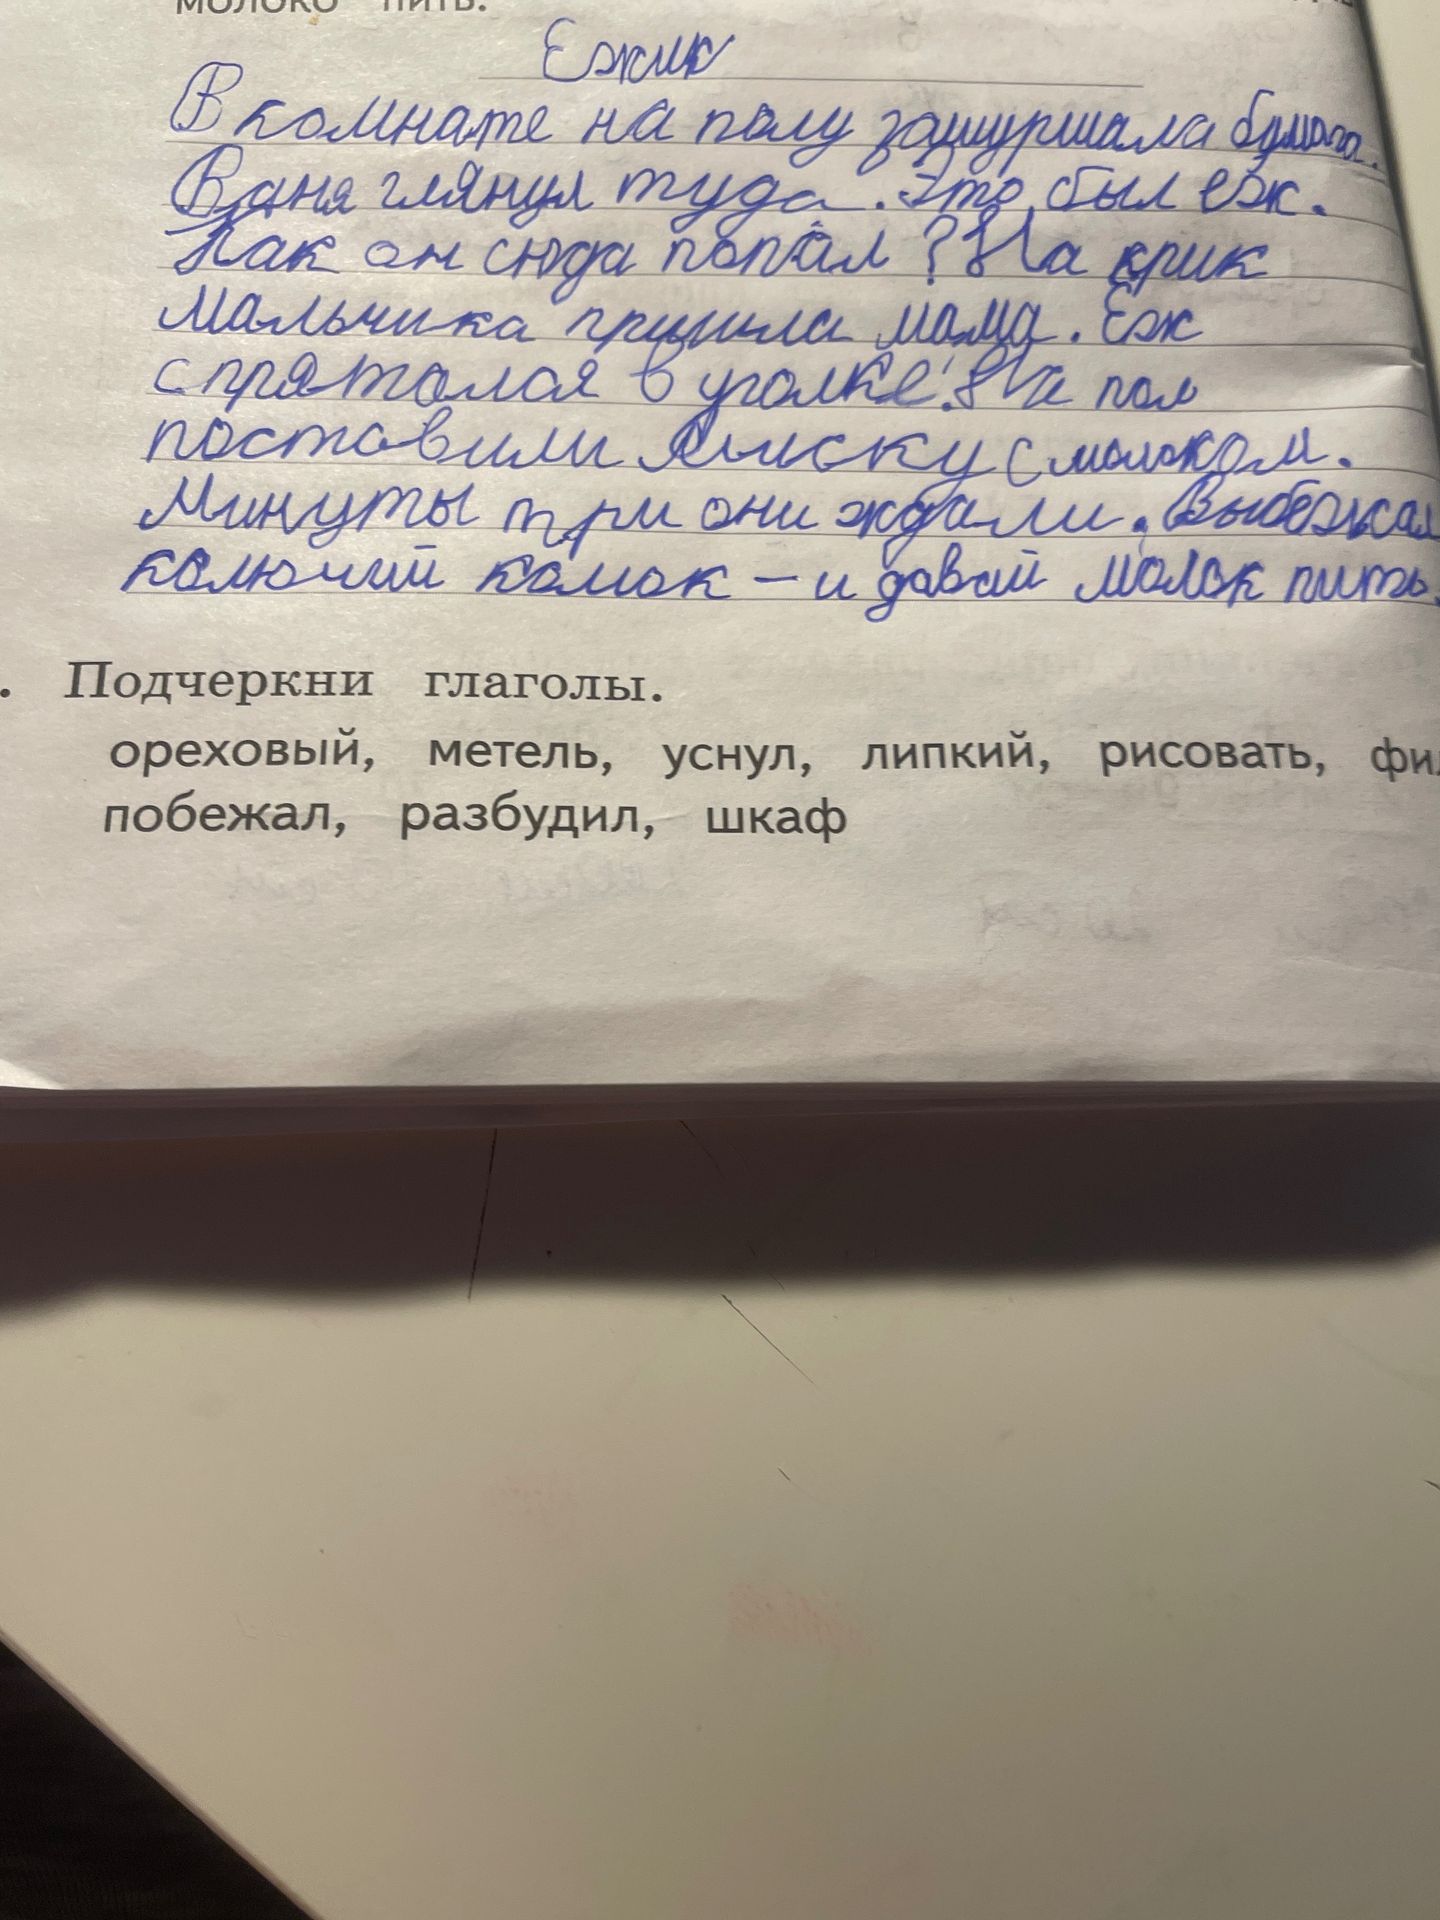 молоко пить.
Ежик
В комнате на полу зашуршала бумага.
Ваня глянул туда. Это был еж.
Как он сюда попал? На крик
мальчика пришла мама. Еж
спрятался в уголке. На пол
поставили миску с молоком.
Минуты три они ждали. Выбежал
колючий комок - и давай молок пить.
. Подчеркни глаголы.
ореховый, метель, уснул, липкий, рисовать, фил
побежал, разбудил, шкаф